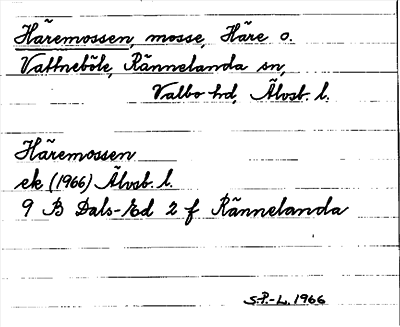 Häremossen, mosse, Häre o.
Vattneböle, Rännelanda sn,
Valbo hd, Älvsb. l.
Häremossen
ek (1966) Älvsb. l.
9 B Dals-Ed 2 f Rännelanda
S.P.-L. 1966